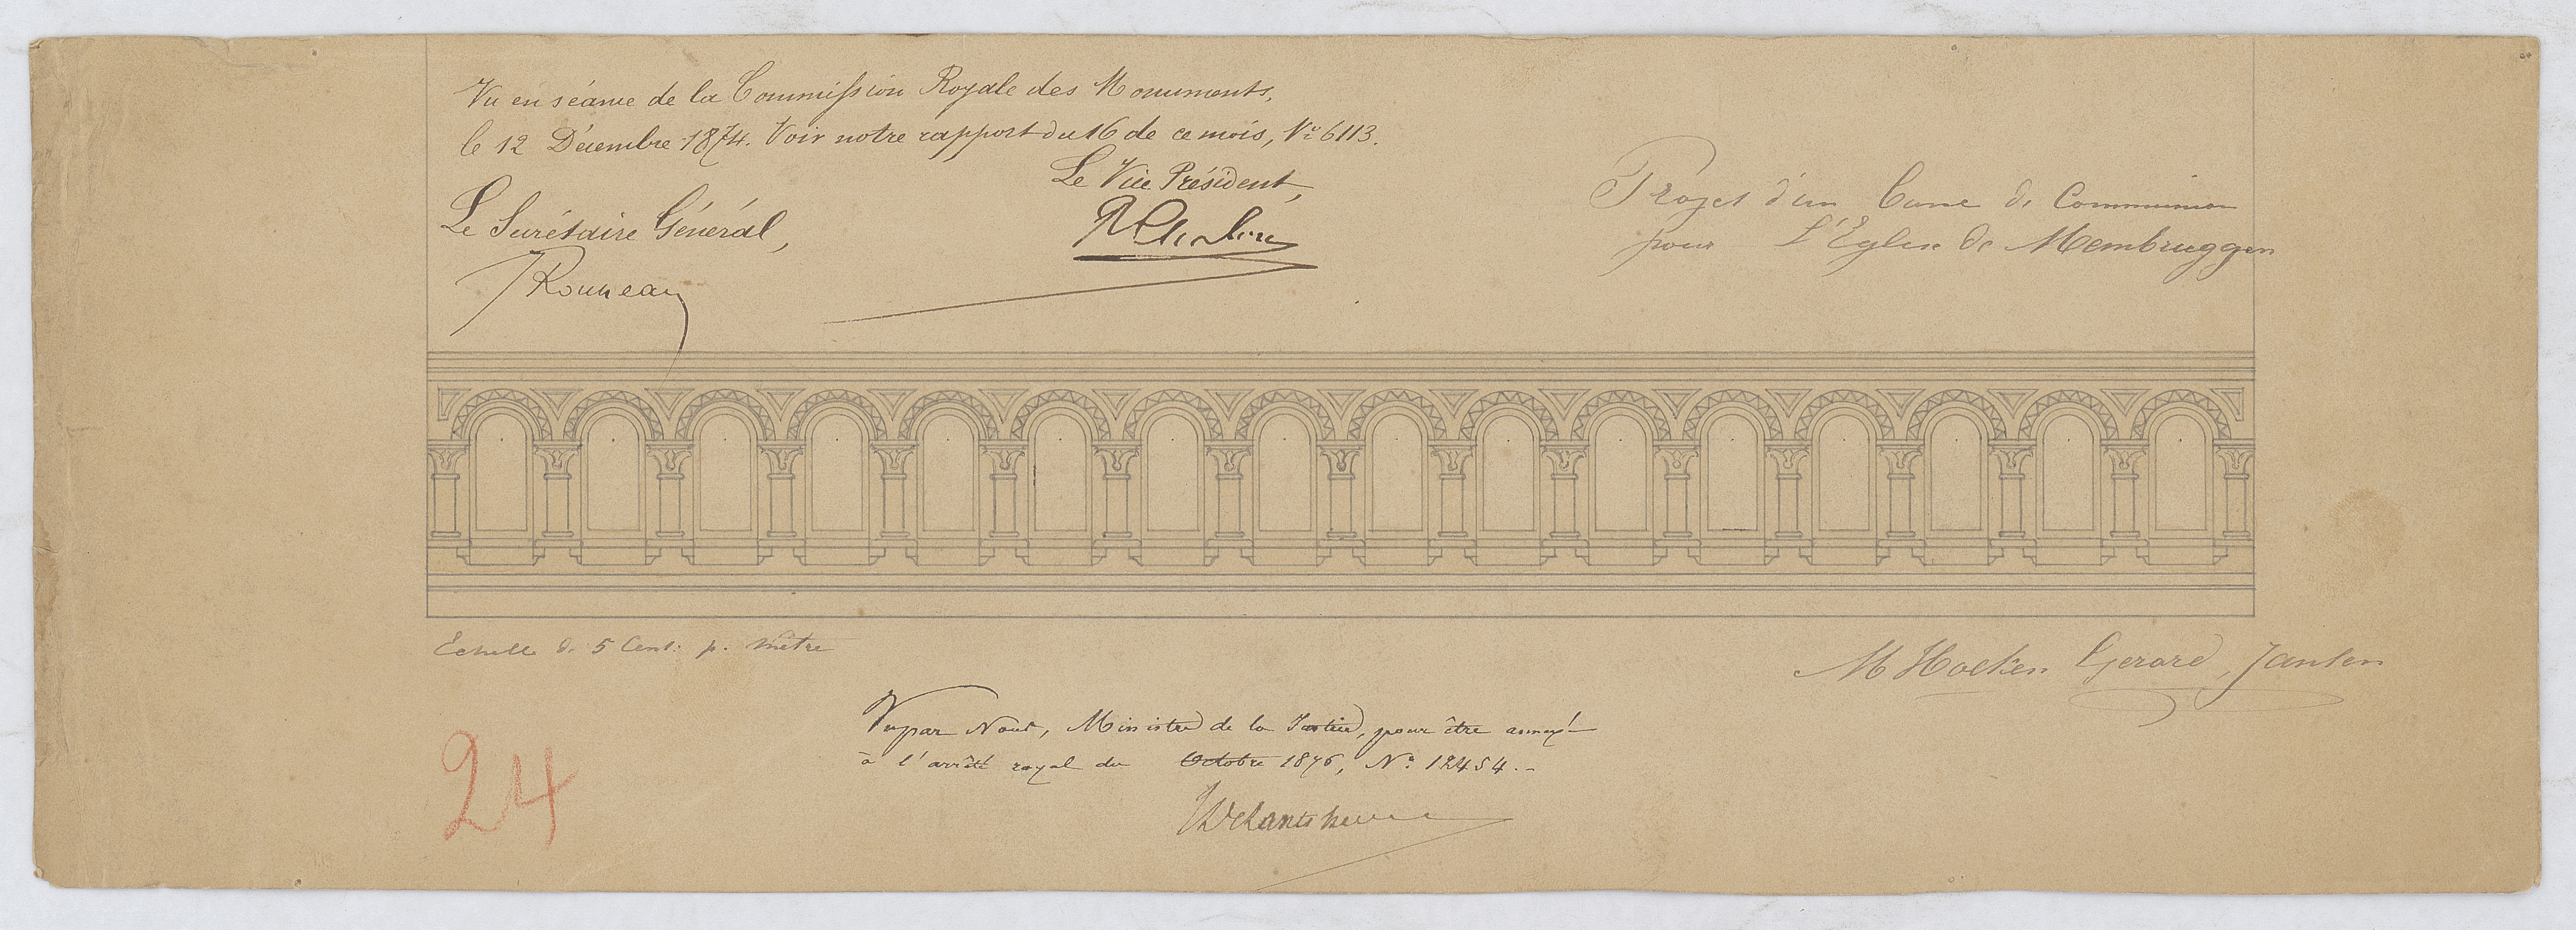 Vu en séance de la Commission Royale des Monuments,
le 12 Décembre 1874. Voir notre rapport du 16 de ce mois, No 6113.
Le Vice Président,
Le Secrétaire Général,
Rousseau
Projet d'un banc de Communion
pour L'Eglise de Membruggen
Echelle de 5 Cent. p. mètre
M Hoeken Gerard, Jansen
Vu par Nous, Ministre de la Justice, pour être annexé
à l'arrêté royal du Octobre 1876, No 12454.-
24